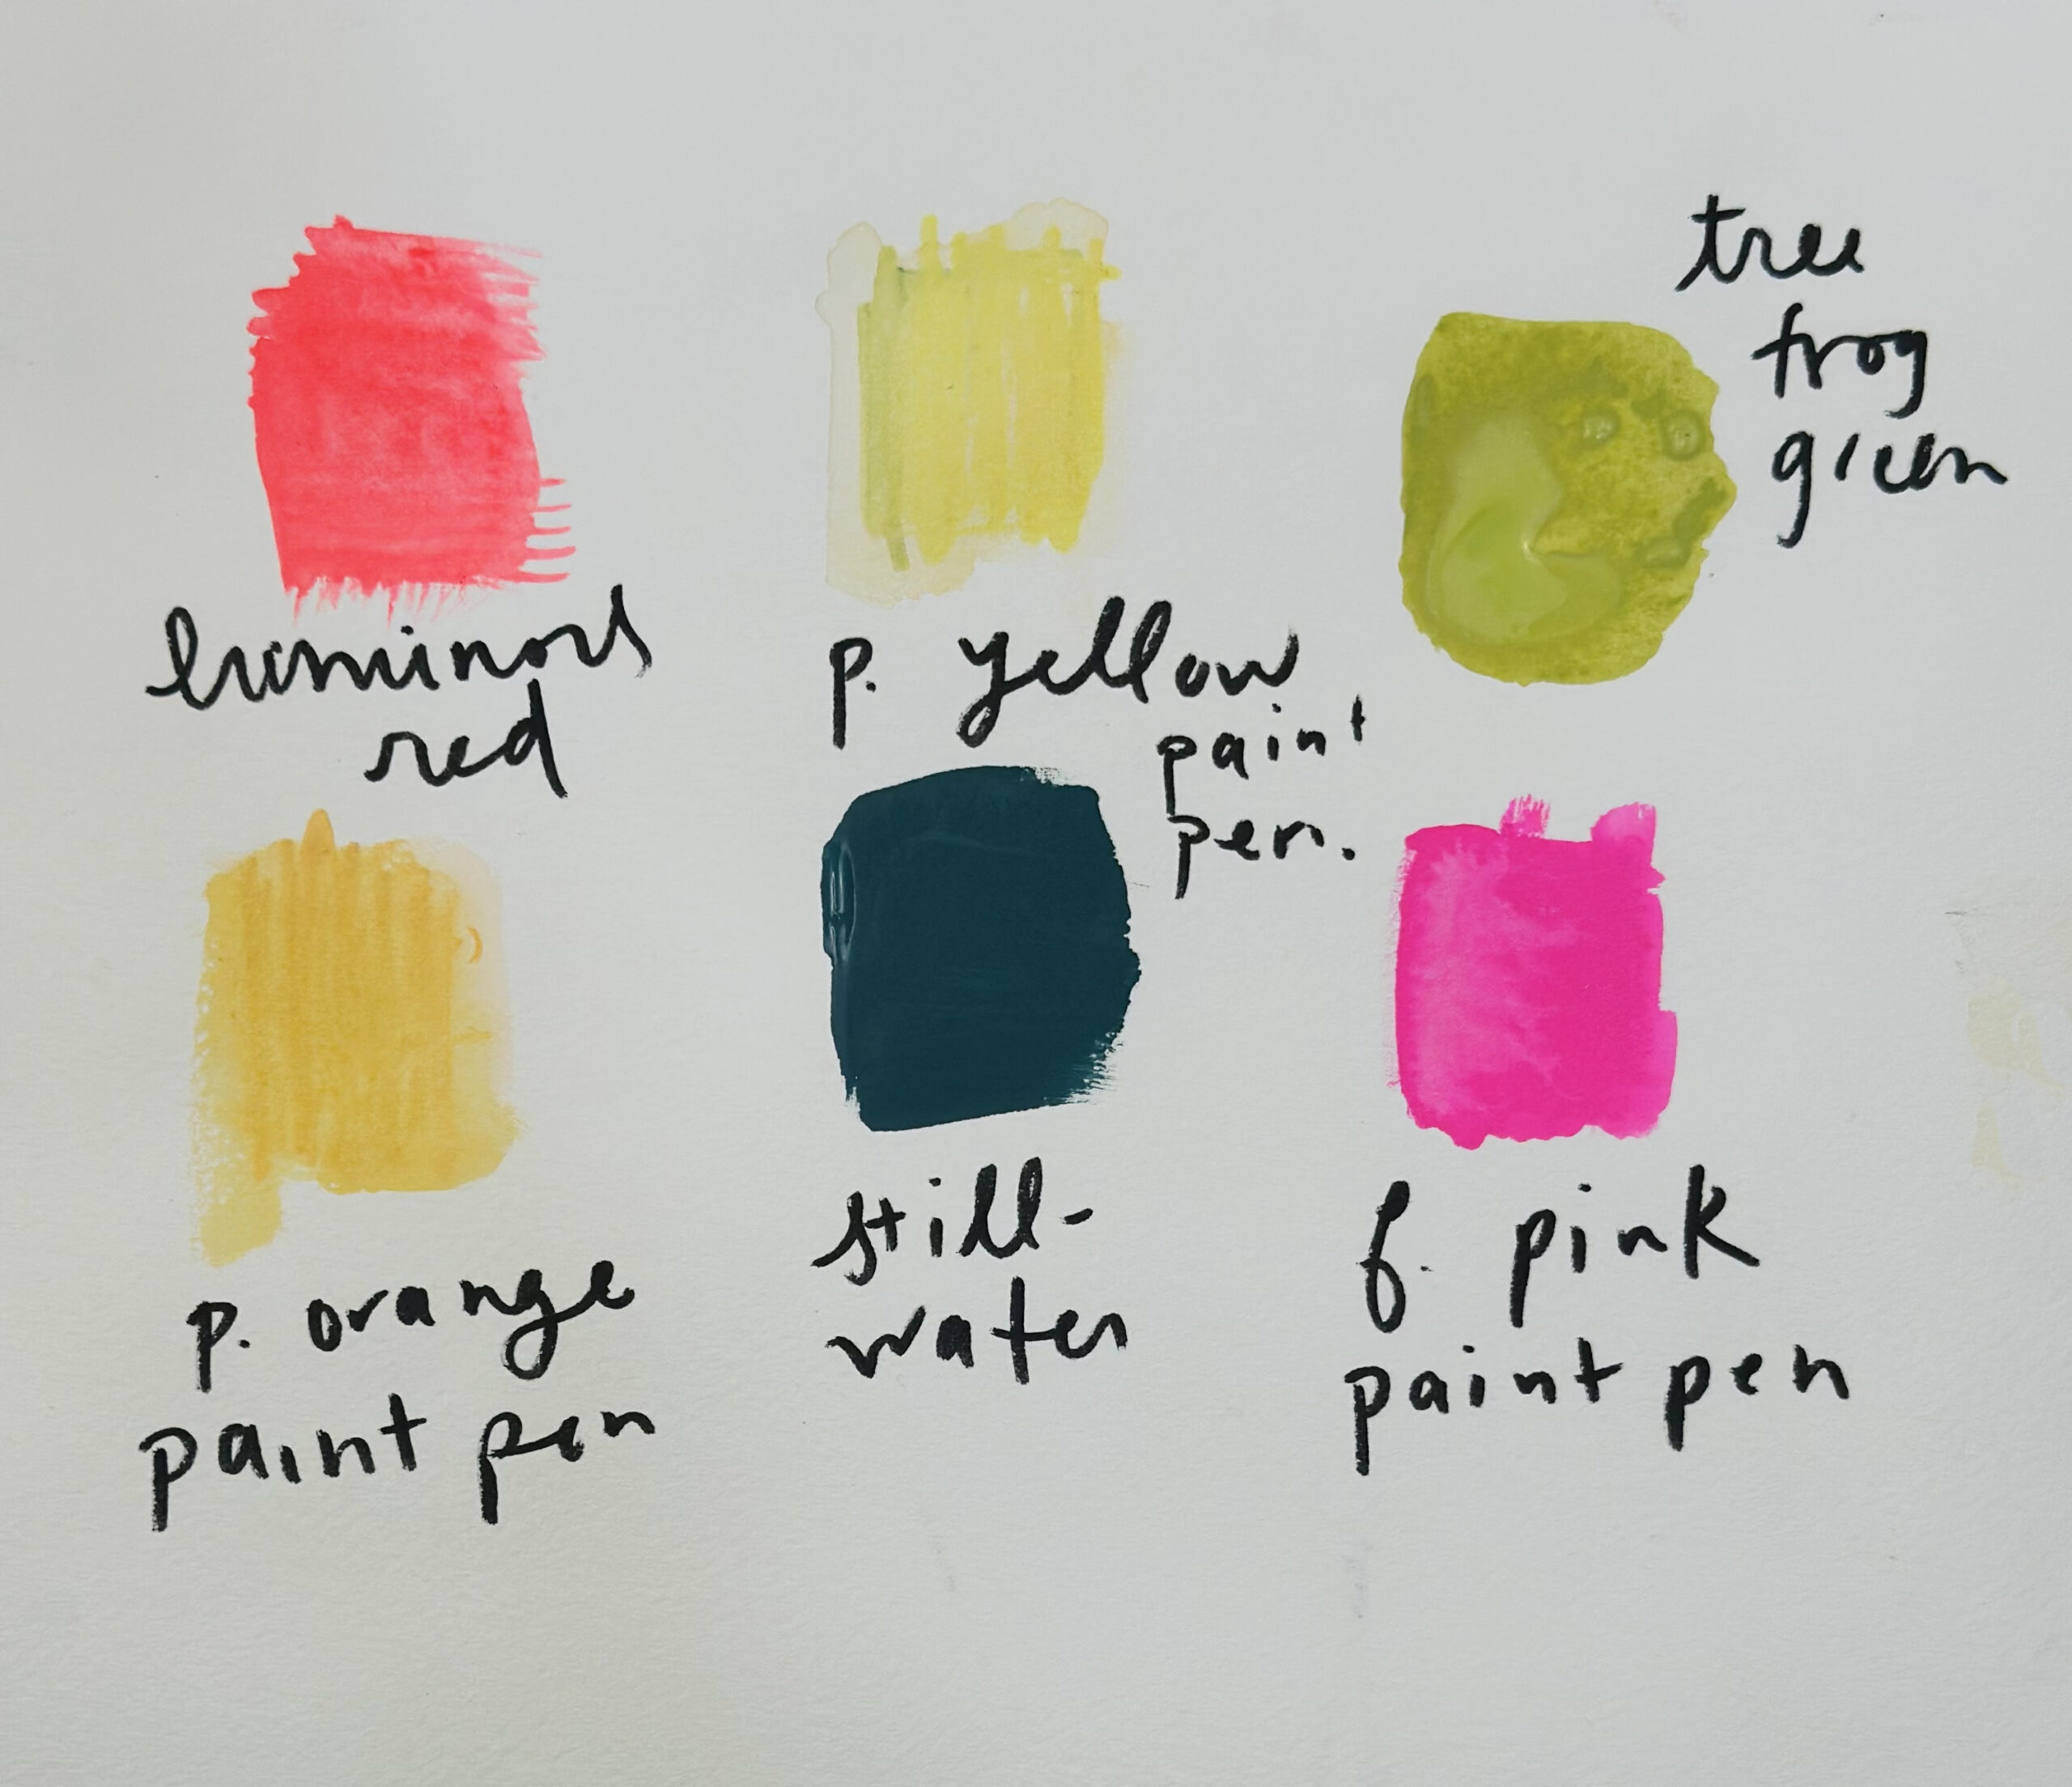 luminous
red
p. yellow
paint
pen.
tree
frog
green
p. orange
paint pen
still-
water
f. pink
paint pen